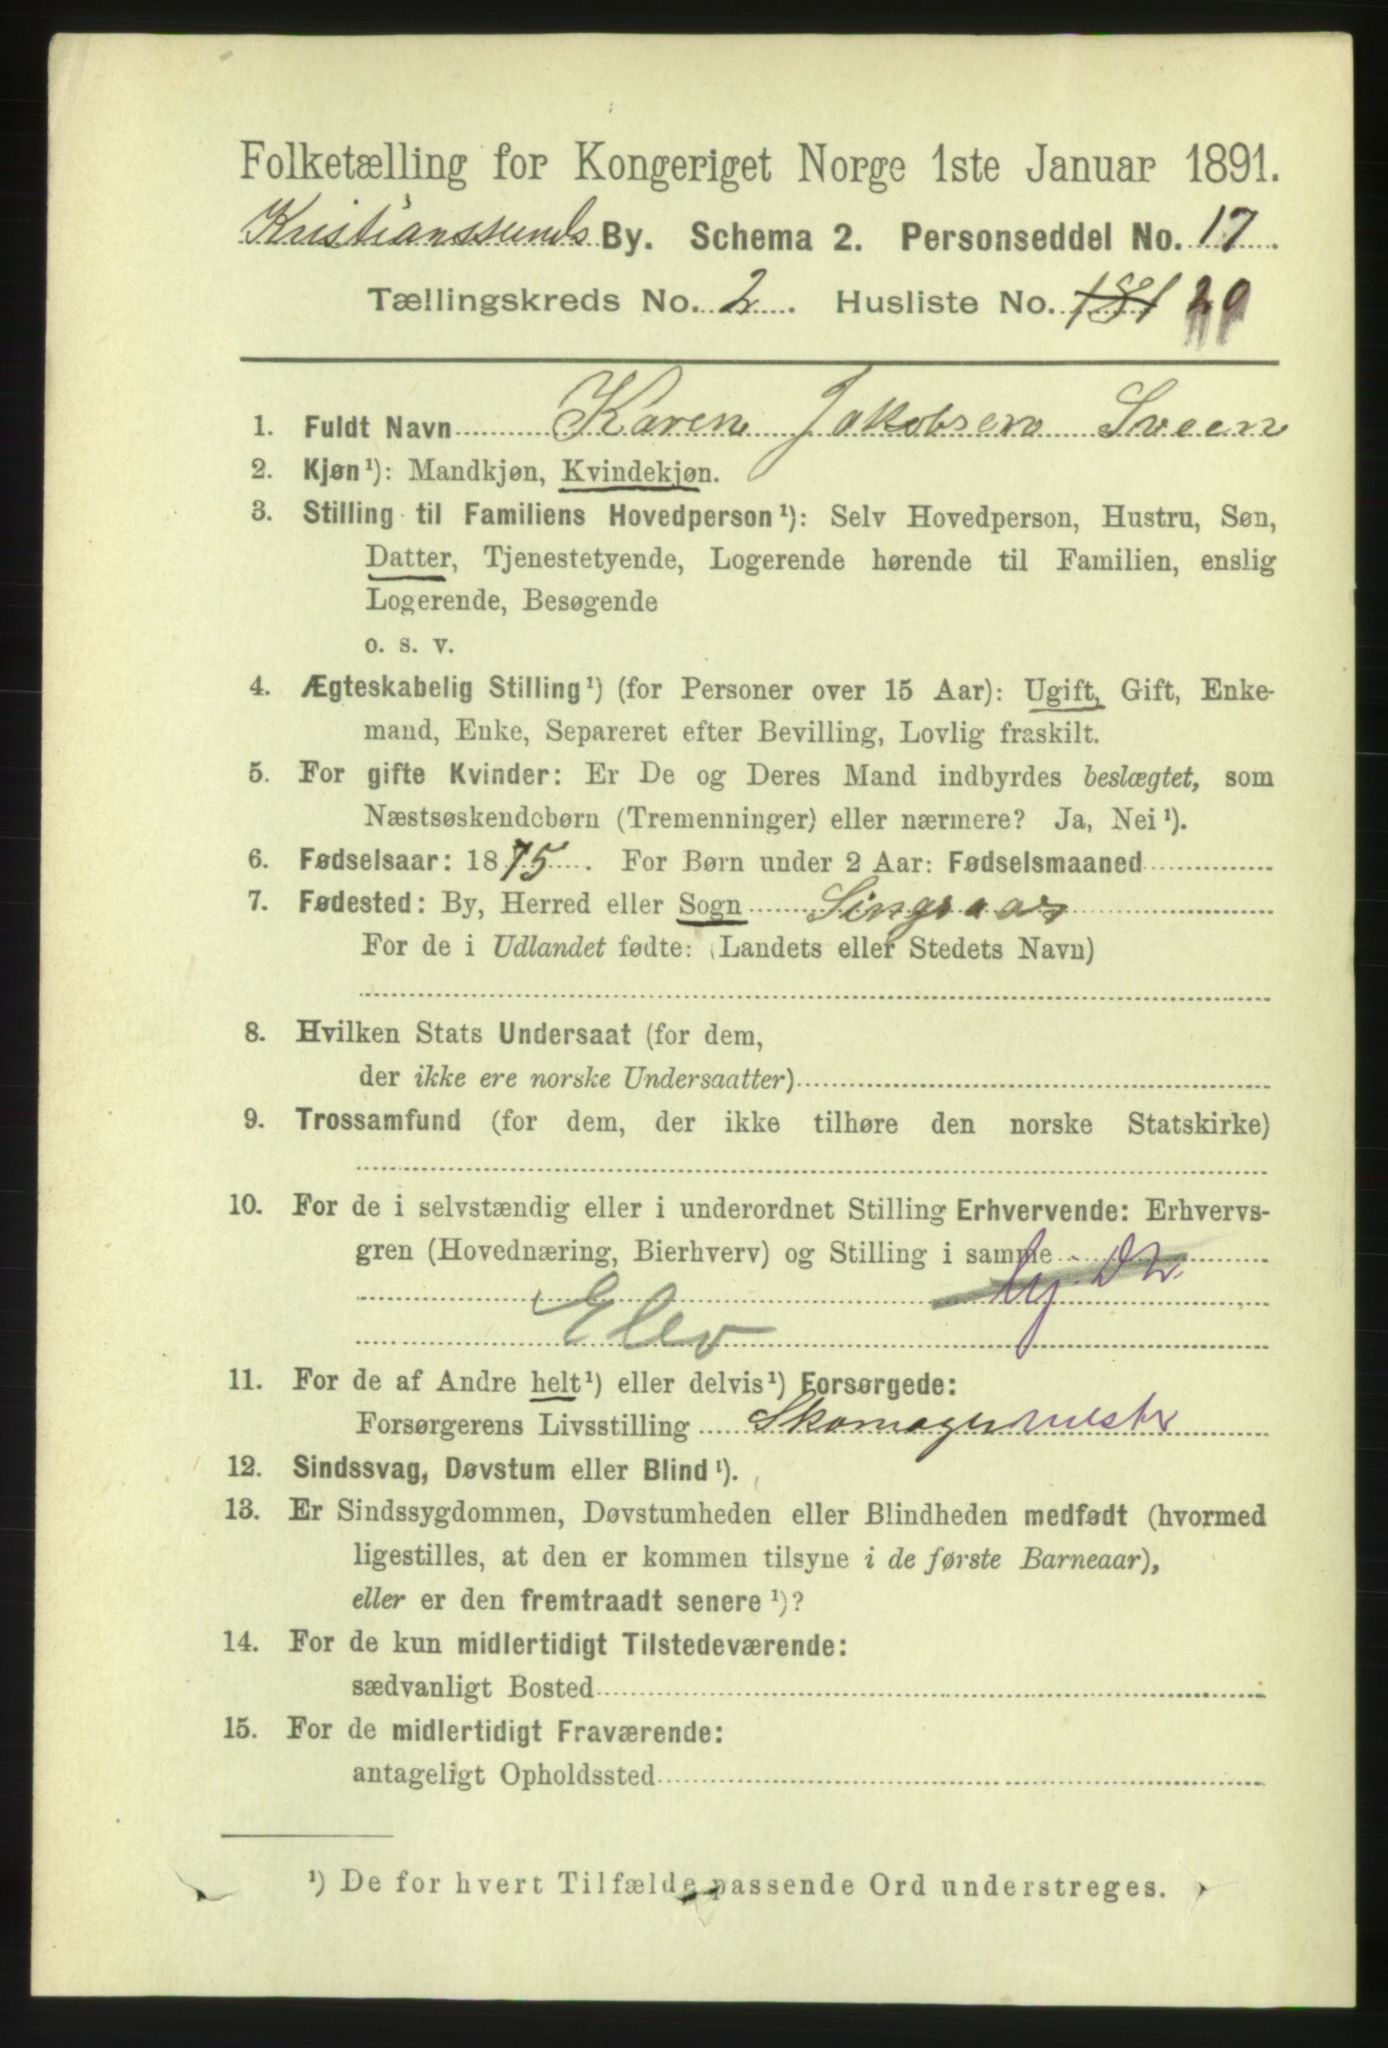 Folketælling for Kongeriget Norge 1ste Januar 1891.
Kristianssunds By. Schema 2. Personseddel No. 17.
Tællingskreds No. 2. Husliste No. 181 20
1. Fuldt Navn Karen Jakobsen Sveen
2. Kjøn¹): Mandkjøn, Kvindekjøn.
3. Stilling til Familiens Hovedperson¹): Selv Hovedperson, Hustru, Søn,
Datter, Tjenestetyende, Logerende hørende til Familien, enslig
Logerende, Besøgende
o. s. v.
4. Ægteskabelig Stilling¹) (for Personer over 15 Aar): Ugift, Gift, Enke-
mand, Enke, Separeret efter Bevilling, Lovlig fraskilt.
5. For gifte Kvinder: Er De og Deres Mand indbyrdes beslægtet, som
Næstsøskendebørn (Tremenninger) eller nærmere? Ja, Nei¹).
6. Fødselsaar: 1875. For Børn under 2 Aar: Fødselsmaaned
7. Fødested: By, Herred eller Sogn Singsaas
For de i Udlandet fødte: (Landets eller Stedets Navn)
8. Hvilken Stats Undersaat (for dem,
der ikke ere norske Undersaatter)
9. Trossamfund (for dem, der ikke tilhøre den norske Statskirke)
10. For de i selvstændig eller i underordnet Stilling Erhvervende: Erhvervs-
gren (Hovednæring, Bierhverv) og Stilling i samme
Elev
11. For de af Andre helt¹) eller delvis¹) Forsørgede:
Forsørgerens Livsstilling Skomagermester
12. Sindssvag, Døvstum eller Blind¹).
13. Er Sindssygdommen, Døvstumheden eller Blindheden medfødt (hvormed
ligestilles, at den er kommen tilsyne i de første Barneaar),
eller er den fremtraadt senere¹)?
14. For de kun midlertidigt Tilstedeværende:
sædvanligt Bosted
15. For de midlertidigt Fraværende:
antageligt Opholdssted
¹) De for hvert Tilfælde passende Ord understreges.